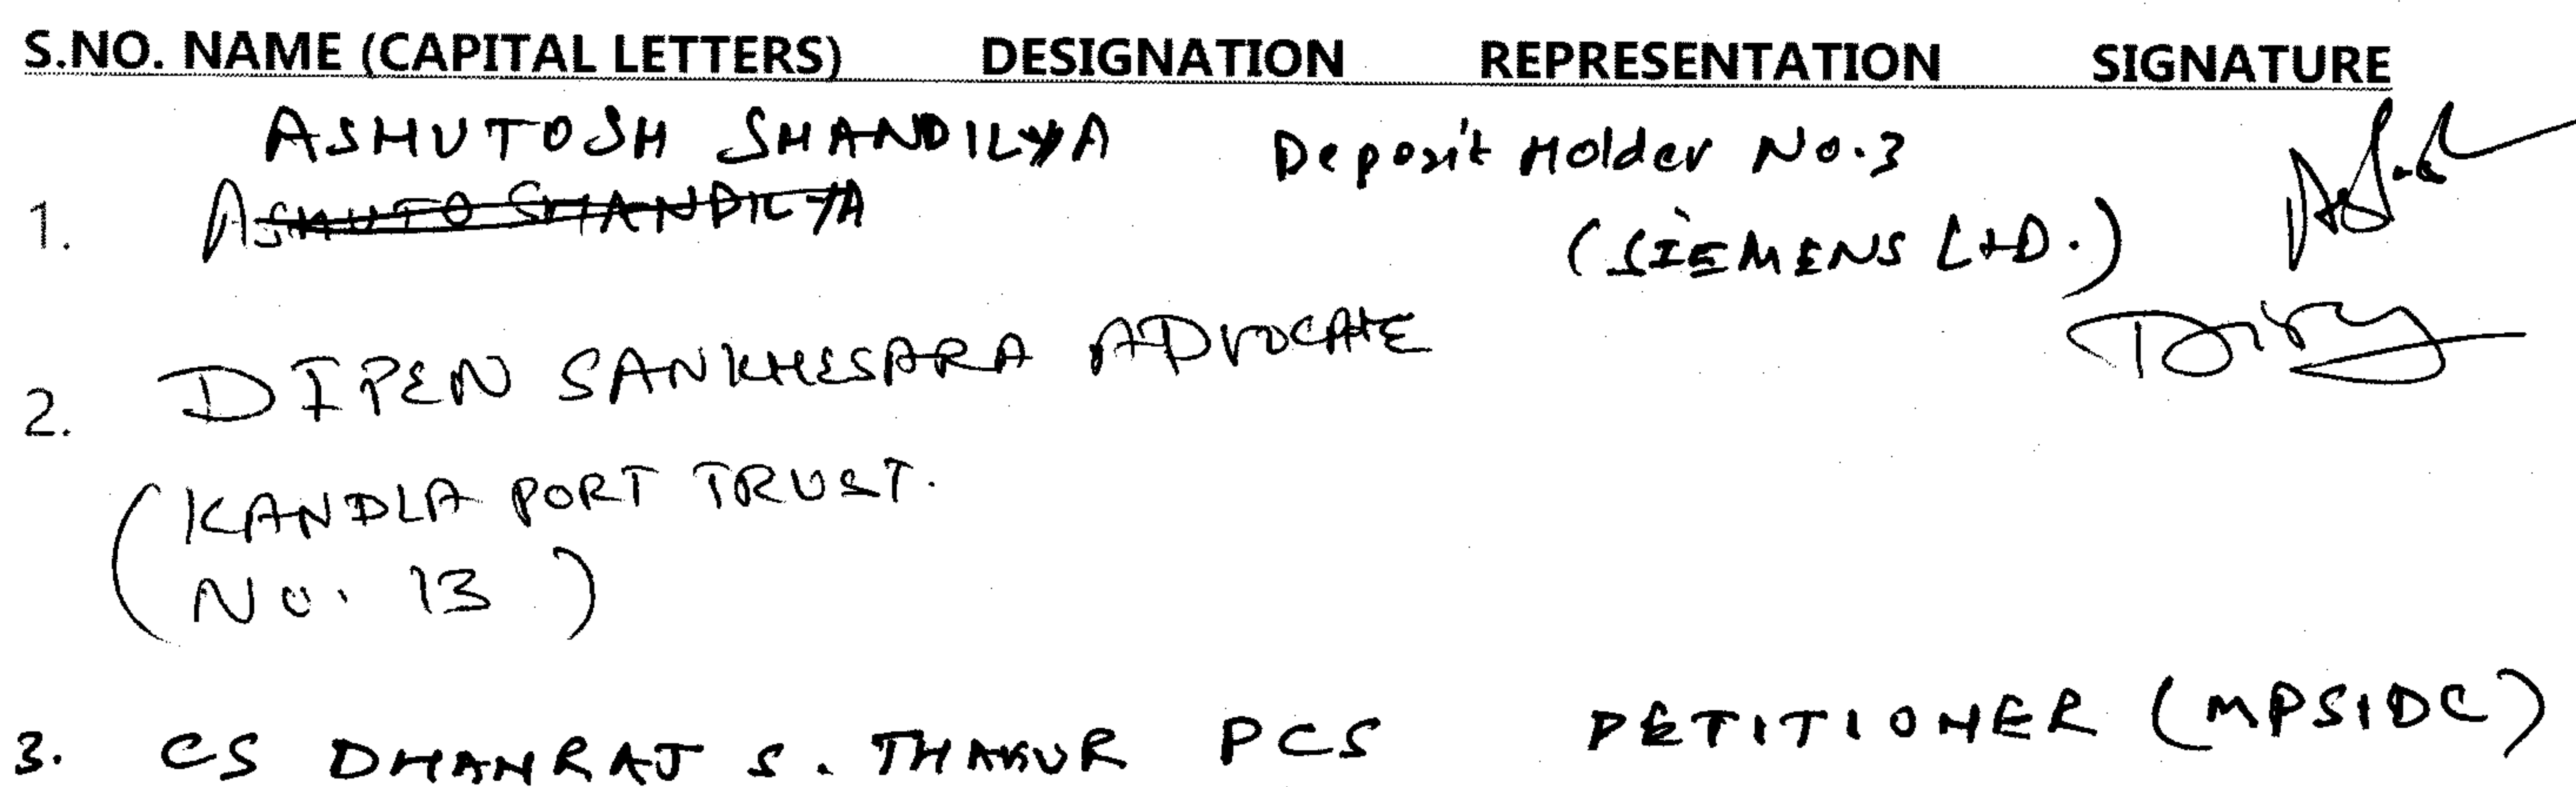 S.NO. NAME (CAPITAL LETTERS) DESIGNATION REPRESENTATION SIGNATURE
ASHUTOSH SHANDILYA Deposit Holder No.3
1. ASHUTO SHANDILYA
(SIEMENS LTD.)
2. DIPEN SANKHESARA ADVOCATE
(KANDLA PORT TRUST.
No. 13)
3. CS DHANRAJ S. THAKUR PCS PETITIONER (MPSIDC)